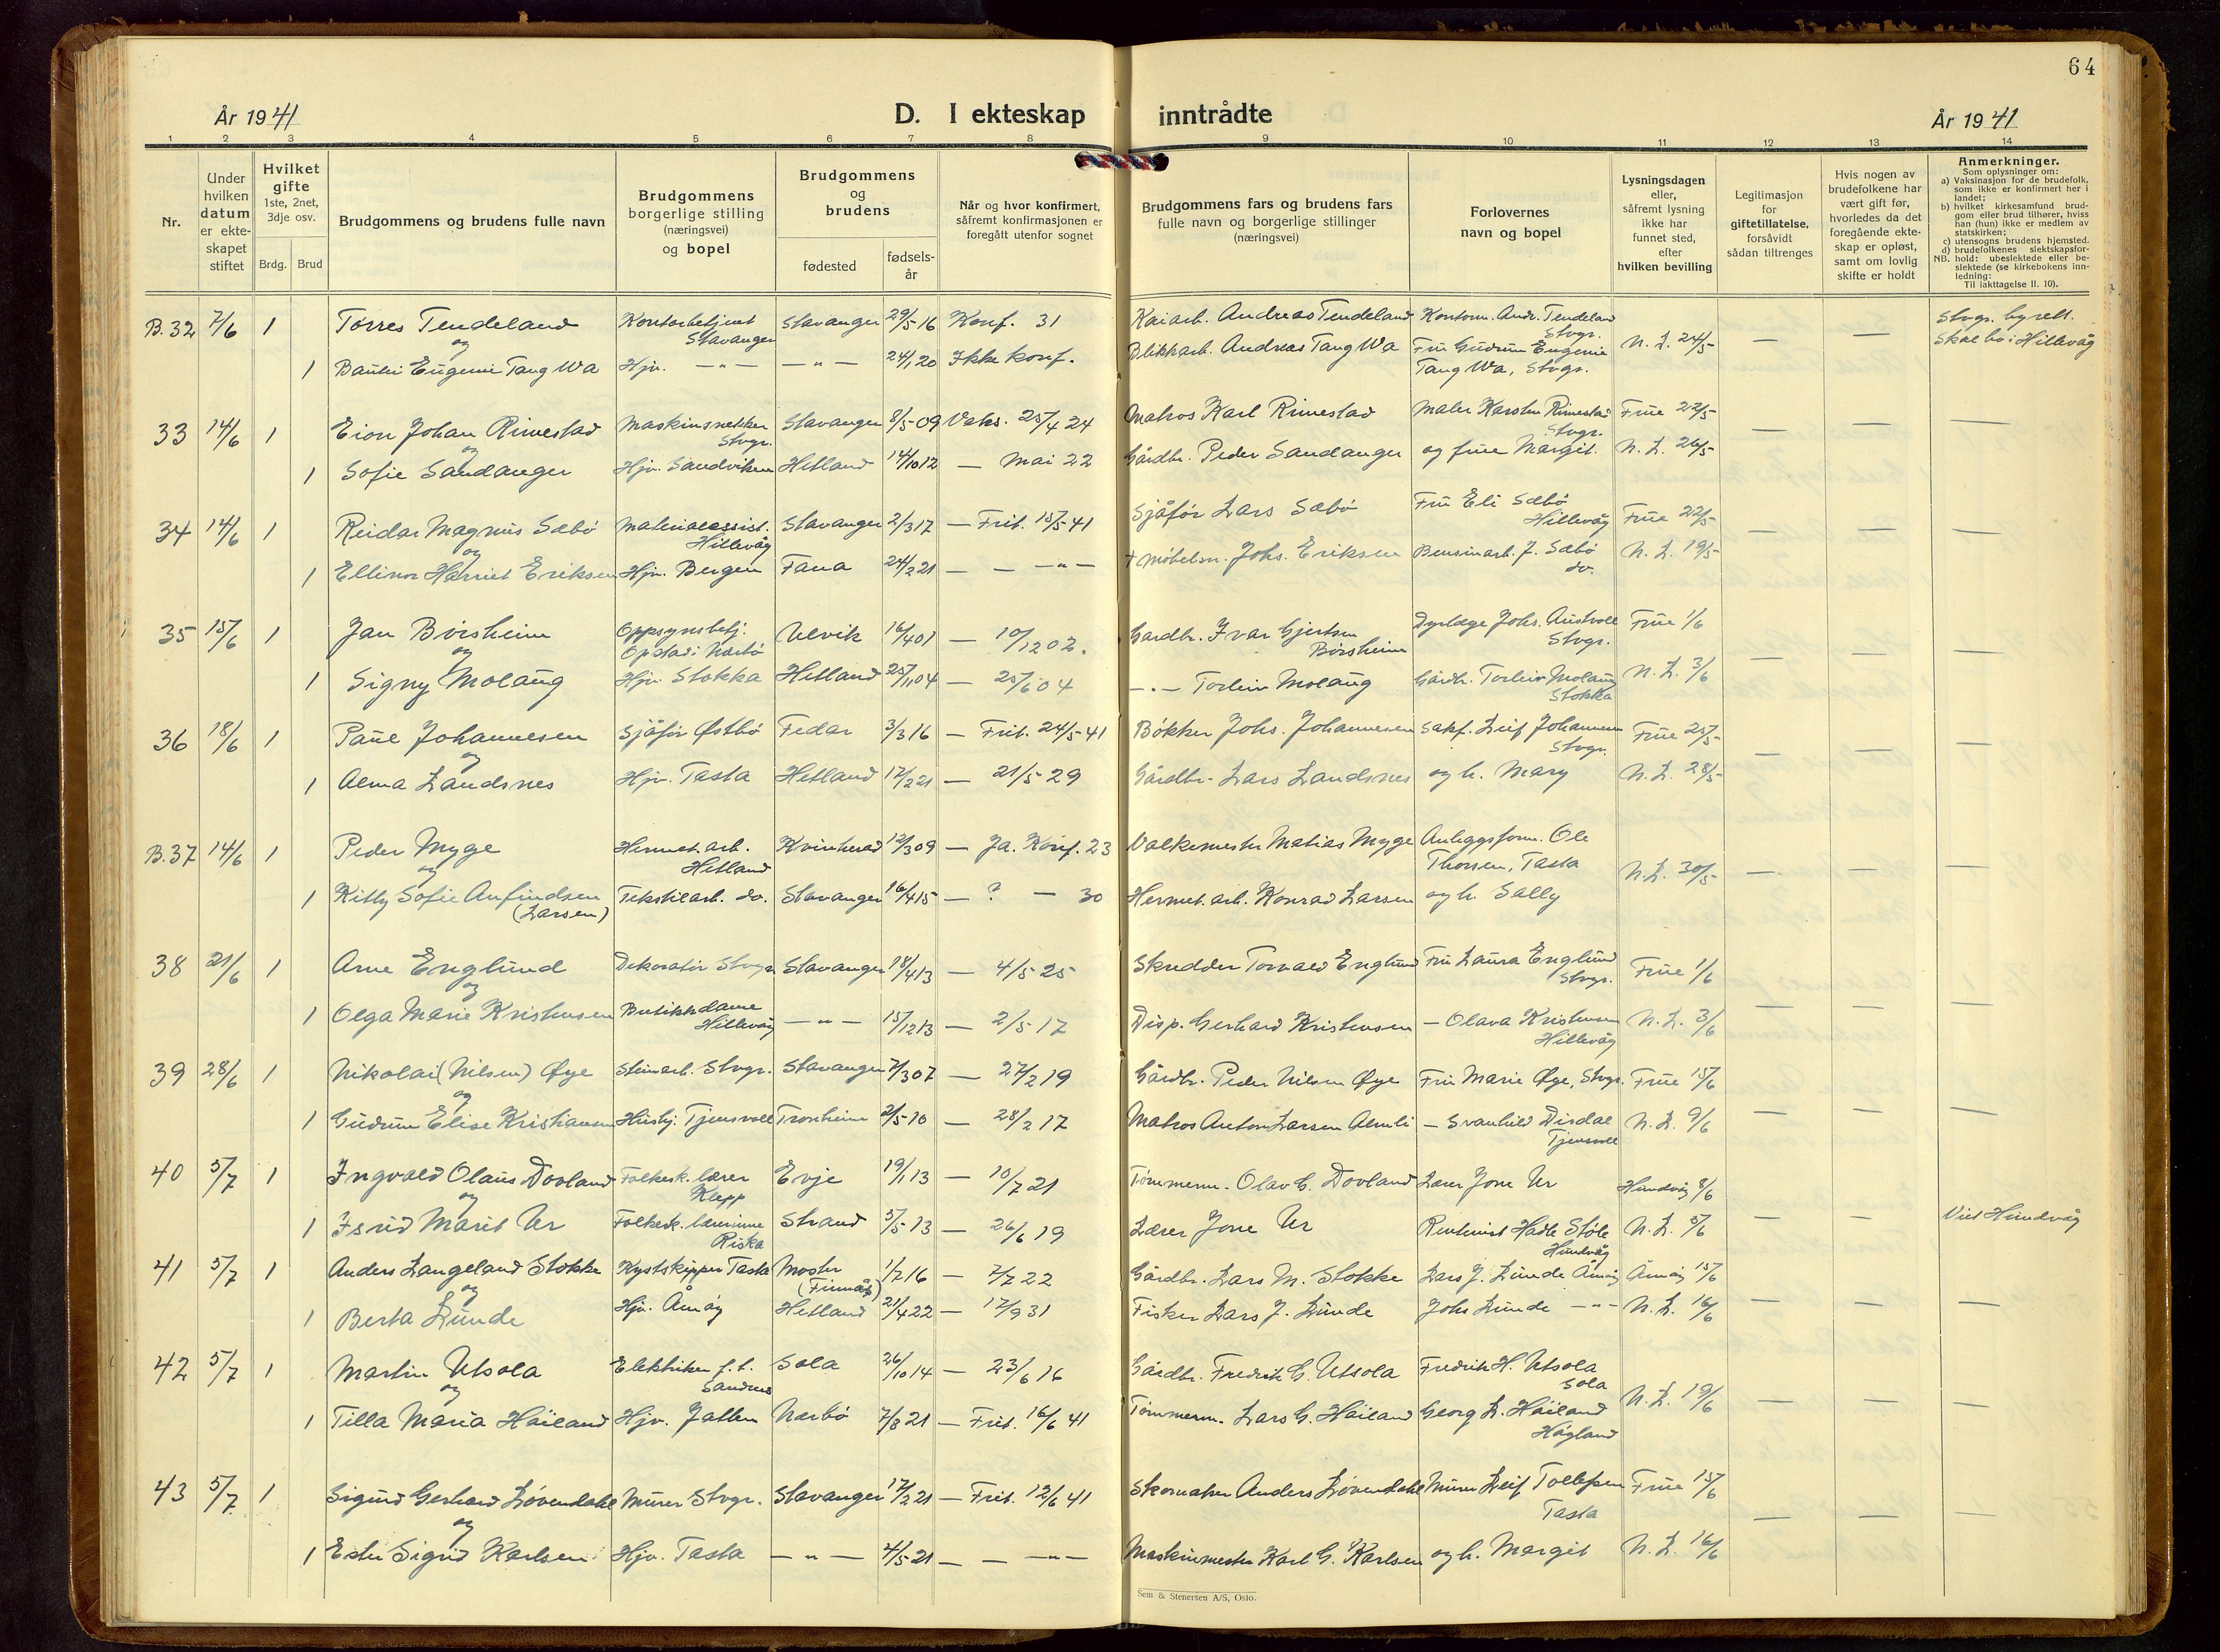 64
År 1941
D. I ekteskap inntrådte
År 1941
1 2 3 4 5 6 7 8 9 10 11 12 13 14
Nr.
Under hvilken datum er ekteskapet stiftet
Hvilket gifte 1ste, 2net, 3dje osv.
Brdg. Brud
Brudgommens og brudens fulle navn
Brudgommens borgerlige stilling (næringsvei) og bopel
Brudgommens og brudens
fødested
fødselsår
Når og hvor konfirmert, såfremt konfirmasjonen er foregått utenfor sognet
Brudgommens fars og brudens fars fulle navn og borgerlige stillinger (næringsvei)
Forlovernes navn og bopel
Lysningsdagen eller, såfremt lysning ikke har funnet sted, efter hvilken bevilling
Legitimasjon for giftetillatelse, forsåvidt sådan tiltrenges
Hvis nogen av brudefolkene har vært gift før, hvorledes da det foregående ekteskap er opløst, samt om lovlig skifte er holdt
Anmerkninger.
Som oplysninger om:
a) Vaksinasjon for de brudefolk, som ikke er konfirmert her i landet;
b) hvilket kirkesamfund brudgom eller brud tilhører, hviss han (hun) ikke er medlem av statskirken;
c) utensogns brudens hjemsted.
d) brudefolkenes slektskapsforhold: ubeslektede eller beslektede (se kirkebokens innledning:
NB.
Til iakttagelse II. 10).
B.32 7/6 1 Torres Tendeland Kontorbetjent Stavanger Stavanger 29/5 16 Konf. 31 Kaiarb. Andreas Tendeland Kontorm. Andr. Tendeland Stvgr. N.L. 24/5 — — Stvgr. byrett. Skal bo i Hillevåg
og
1 Eugenie Tang Wa Hjv. —"— —"— 24/1 20 Ikke konf. Blikkarb. Andreas Tang Wa Fru Gudrun Eugenie Tang Wa, Stvgr.
33 14/6 1 Johan Rimestad Maskinsnekker Stvgr. Stavanger 8/5 09 Vaks. 25/4 24 Matros Karl Rimestad Maler Karsten Rimestad Stvgr. Frue 22/5 — — —
og
1 Sofie Sandanger Hjv. Sandviken Hetland 14/10 12 — Mai 22 Gårdbr. Peder Sandanger og frue Margit. N.L. 26/5
34 14/6 1 Reidar Magnus Sæbø Materialassist. Hillevåg Stavanger 2/3 17 — Frit. 15/5 41 Sjåfør Lars Sæbø Fru Eli Sæbø Hillevåg Frue 22/5 — — —
og
1 Ellinor Harriet Eriksen Hjv. Bergen Fana 24/2 21 — — —"— † Møbelsn. Johs. Eriksen Bensinarb. J. Sæbø do. N.L. 19/5
35 15/6 1 Jan Børsheim Oppsynsbetj. Opstad i Nærbø Ulvik 16/4 01 — 10/12 02. Gardbr. Ivar Gjertsen Børsheim Dyrlæge Johs. Austvoll Stvgr. Frue 1/6 — — —
og
1 Signy Molaug Hjv. Stokka Hetland 25/11 04 — 25/6 04 —"— Torleiv Molaug Gårdbr. Torleiv Molaug Stokka N.L. 3/6
36 18/6 1 Paul Johannesen Sjåfør Østbø Fedar 3/3 16 — Frit. 24/5 41 Bøkker Johs. Johannesen Sakf. Leif Johannesen Stvgr. Frue 25/5 — — —
og
1 Alma Landsnes Hjv. Tasta Hetland 17/2 21 — 21/5 29 Gårdbr. Lars Landsnes og h. Mary N.L. 28/5
B.37 14/6 1 Peder Myge Hermet.arb. Hetland Kvinherad 12/3 09 — Ja. Konf. 23 Valkemester Matias Myge Anleggsform. Ole Thorsen, Tasta N.L. 30/5 — — —
og
1 Kitty Sofie Anfindsen (Larsen) Tekstilarb. do. Stavanger 16/4 15 — ? — 30 Hermet.arb. Konrad Larsen og h. Sally
38 21/6 1 Arne Englund Dekoratør Stvgr. Stavanger 18/4 13 — 4/5 25 Skredder Torvald Englund Fru Laura Englund Stvgr. Frue 1/6 — — —
og
1 Olga Marie Kristensen Butikkdame Hillevåg —"— 15/12 13 — 2/5 17 Disp. Gerhard Kristensen — Olava Kristensen Hillevåg N.L. 3/6
39 28/6 1 Nikolai (Nilsen) Øye Steinarb. Stvgr. Stavanger 7/3 07 — 27/2 19 Gårdbr. Peder Nilsen Øye Fru Marie Øye, Stvgr. Frue 15/6 — — —
og
1 Gudrun Elise Kristiansen Husbj. Tjensvoll Tronheim 2/5 10 — 28/2 17 Matros Anton Larsen Almli — Svanhild Disdal Tjensvoll N.L. 9/6
40 5/7 1 Ingvald Olaus Dovland Folkesk. lærer Klepp Evje 19/1 13 — 10/7 21 Tømmerm. Olav G. Dovland Lærer Jone Ur Hundvåg 8/6 — — Viet Hundvåg
og
1 Isrid Marit Ur Folkesk. lærerinne Riska Strand 5/5 13 — 26/6 19 Lærer Jone Ur Rentenist Hadle Støle Hundvåg N.L. 5/6
41 5/7 1 Anders Langeland Stokke Kystskipper Tasta Moster (Finnås) 1/7 16 — 2/7 22 Gårdbr. Lars M. Stokke Lars J. Lunde Åmøy Åmøy 15/6 — — —
og
1 Berta Lunde Hjv. Åmøy Hetland 21/4 22 — 17/9 31 Fisker Lars J. Lunde Johs Lunde —"— N.L. 16/6
42 5/7 1 Martin Utsola Elektriker f.t. Sandnes Sola 26/10 14 — 23/6 16 Gårdbr. Fredrik G. Utsola Fredrik H. Utsola Sola N.L. 19/6 — — —
og
1 Tilla Maria Håiland Hjv. Jåtten Nærbø 7/8 21 — Frit. 16/6 41 Tømmerm. Lars G. Håiland Georg L. Håiland Hågland
43 5/7 1 Sigurd Gerhard Løvendahl Murer Stvgr. Stavanger 17/2 21 — Frit. 12/6 41 Skomaker Anders Løvendahl Murer Leif Tollefsen Tasta Frue 15/6 — — —
og
1 Ester Sigrid Karlsen Hjv. Tasta —"— 4/5 21 — — —"— Maskinmester Karl G. Karlsen og h. Margit N.L. 16/6
Sem & Stenersen A/S, Oslo.